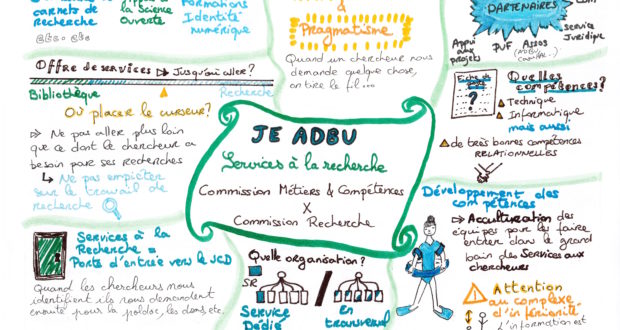 carnets de
recherche
etc. etc.
la Science
Ouverte
Formations
Identité
numérique
&
Pragmatisme
Quand un chercheur nous
demande quelque chose,
on tire le fil...
PARTENAIRES
Appui
aux
projets
PUF
Assos
Service
Juridique
Offre de services
Jusqu'où aller?
Bibliothèque
Recherche
Où placer le curseur?
Ne pas aller plus loin
que ce dont le chercheur a
besoin pour ses recherches
Ne pas empiéter
sur le travail de
recherche
JE ADBU
Services à la recherche
Commission Métiers & Compétences
X
Commission Recherche
Fiche de
poste
?
Quelles
compétences?
Technique
Informatique
mais aussi
de très bonnes compétences
RELATIONNELLES
Services à la
Recherche =
Portes d'entrée vers le SCD
Quand les chercheurs nous
identifient ils nous demandent
ensuite pour la poldoc, les dons, etc.
Quelle organisation?
SR
Service
Dédié
/
en
transversal
Développement des
compétences
Acculturation des
équipes pour les faire
entrer dans le grand
bain des Services aux
chercheurs
Attention
au complexe
d'infériorité
l'information est